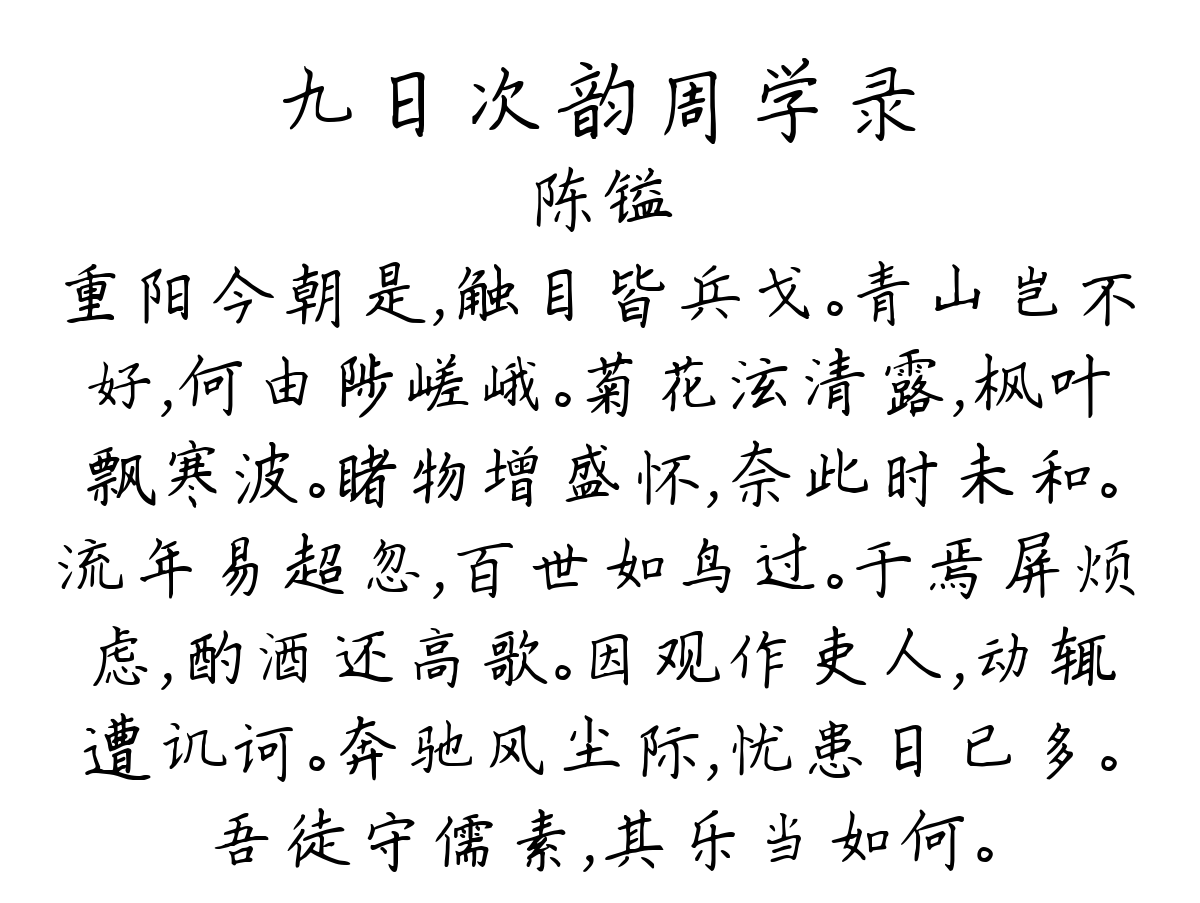 九日次韵周学录
陈镒
重阳今朝是,触目皆兵戈。青山岂不
好,何由陟嵯峨。菊花泫清露,枫叶
飘寒波。睹物增盛怀,奈此时未和。
流年易超忽,百世如鸟过。于焉屏烦
虑,酌酒还高歌。因观作吏人,动辄
遭讥诃。奔驰风尘际,忧患日已多。
吾徒守儒素,其乐当如何。